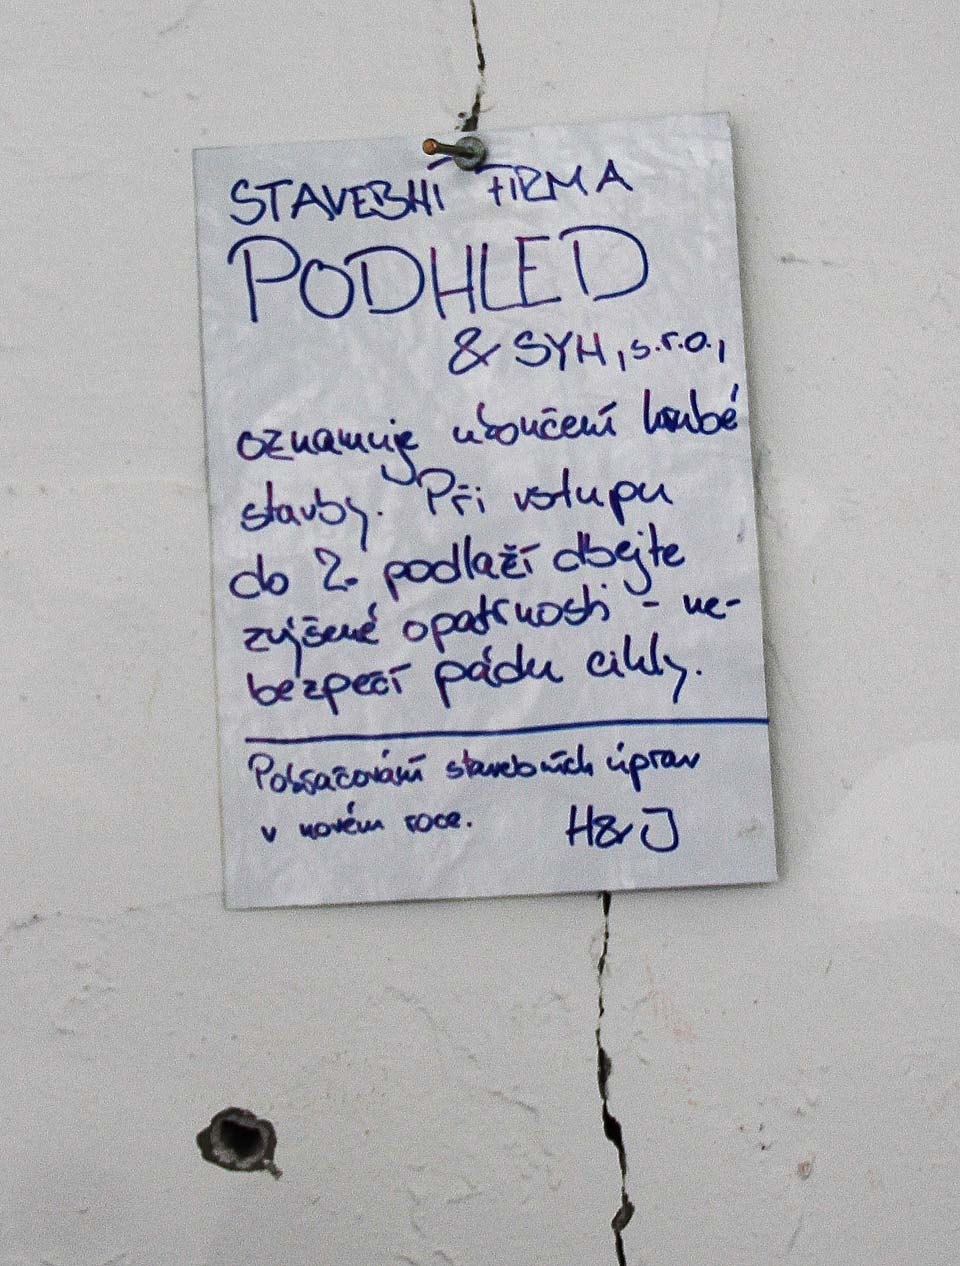 STAVEBNÍ FIRMA
PODHLED
& SYN, s.r.o.,
oznamuje ukončení hrubé
stavby. Při vstupu
do 2. podlaží dbejte
zvýšené opatrnosti - ne-
bezpečí pádu cihly.
Pokračování stavebních úprav
v novém roce. H&J